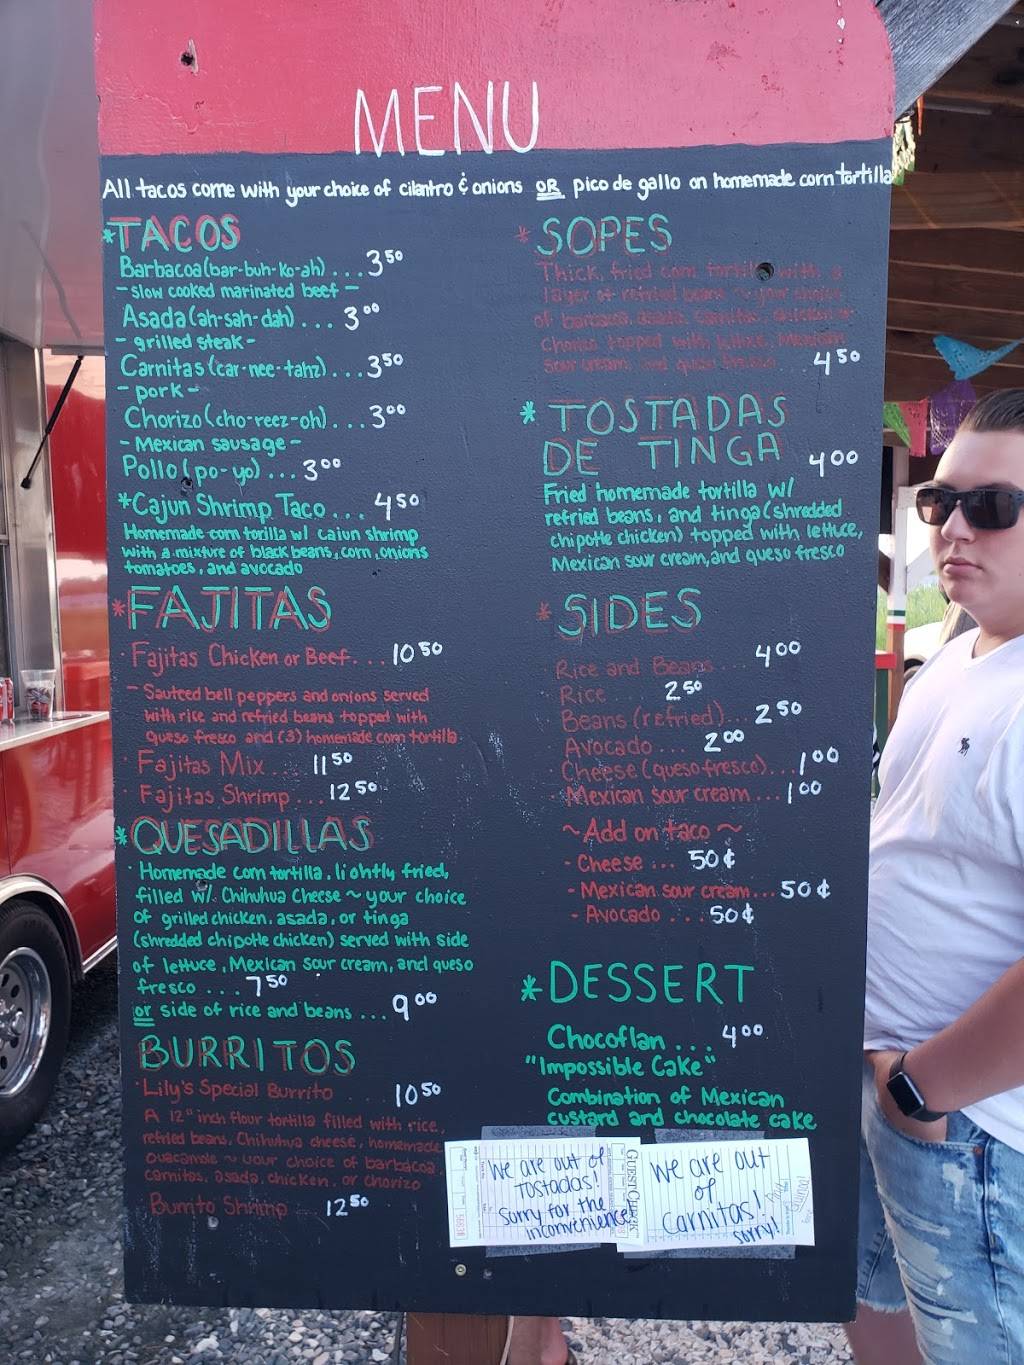 MENU
All tacos come with your choice of cilantro & onions OR pico de gallo on homemade corn tortilla
*TACOS
Barbacoa (bar-buh-ko-ah) ... 3⁵⁰
- slow cooked marinated beef -
Asada (ah-sah-dah) ... 3⁰⁰
- grilled steak -
Carnitas (car-nee-tahz) ... 3⁵⁰
- pork -
Chorizo (cho-reez-oh) ... 3⁰⁰
- Mexican sausage -
Pollo (po-yo) ... 3⁰⁰
*Cajun Shrimp Taco ... 4⁵⁰
Homemade corn torilla w/ cajun shrimp
with a mixture of black beans, corn, onions
tomatoes, and avocado
*FAJITAS
· Fajitas Chicken or Beef... 10⁵⁰
- Sauteed bell peppers and onions served
with rice and refried beans topped with
queso fresco and (3) homemade corn tortilla.
· Fajitas Mix ... 11⁵⁰
· Fajitas Shrimp ... 12⁵⁰
*QUESADILLAS
· Homemade corn tortilla, lightly fried,
filled w/ Chihuhua Cheese ~ your choice
of grilled chicken, asada, or tinga
(shredded chipotle chicken) served with side
of lettuce, Mexican sour cream, and queso
fresco ... 7⁵⁰
or side of rice and beans ... 9⁰⁰
BURRITOS
· Lily's Special Burrito 10⁵⁰
A 12" inch flour tortilla filled with rice,
refried beans, Chihuhua cheese, homemade
guacamole ~ your choice of barbacoa,
carnitas, asada, chicken, or chorizo
Burrito Shrimp 12⁵⁰
*SOPES
Thick, fried corn tortilla with a
layer of refried beans ~ your choice
of barbacoa, asada, carnitas, chicken or
Chorizo topped with lettuce, Mexican
sour cream, and queso fresco 4⁵⁰
*TOSTADAS
DE TINGA 4⁰⁰
Fried homemade tortilla w/
refried beans, and tinga (shredded
chipotle chicken) topped with lettuce,
Mexican sour cream, and queso fresco
*SIDES
· Rice and Beans ... 4⁰⁰
· Rice .... 2⁵⁰
· Beans (refried)... 2⁵⁰
· Avocado.... 2⁰⁰
· Cheese (queso fresco)... 1⁰⁰
· Mexican sour cream... 1⁰⁰
~ Add on taco ~
- Cheese ... 50¢
- Mexican sour cream... 50¢
- Avocado ... 50¢
*DESSERT
Chocoflan ... 4⁰⁰
"Impossible Cake"
Combination of Mexican
custard and chocolate cake
We are out of
TOSTADAS!
Sorry for the
inconvenience!
GUEST CHECK
We are out
of
Carnitas!
sorry!